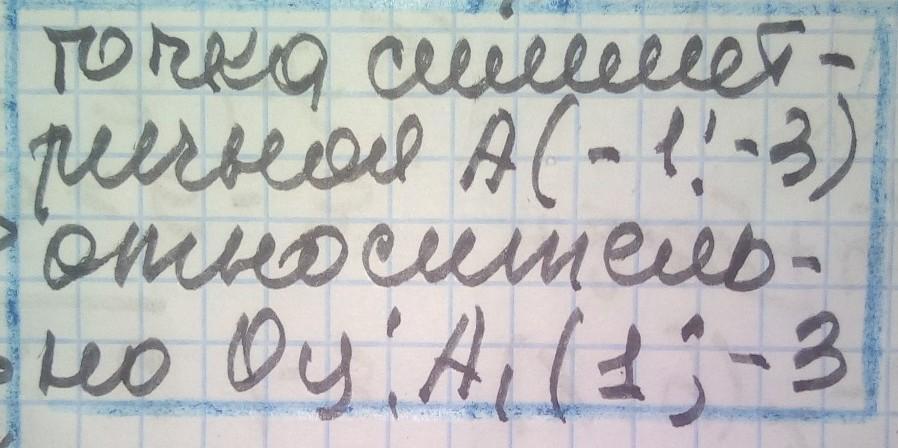 точка симмет-
ричная A(-1; -3)
относитель-
но Oy: A₁(1; -3